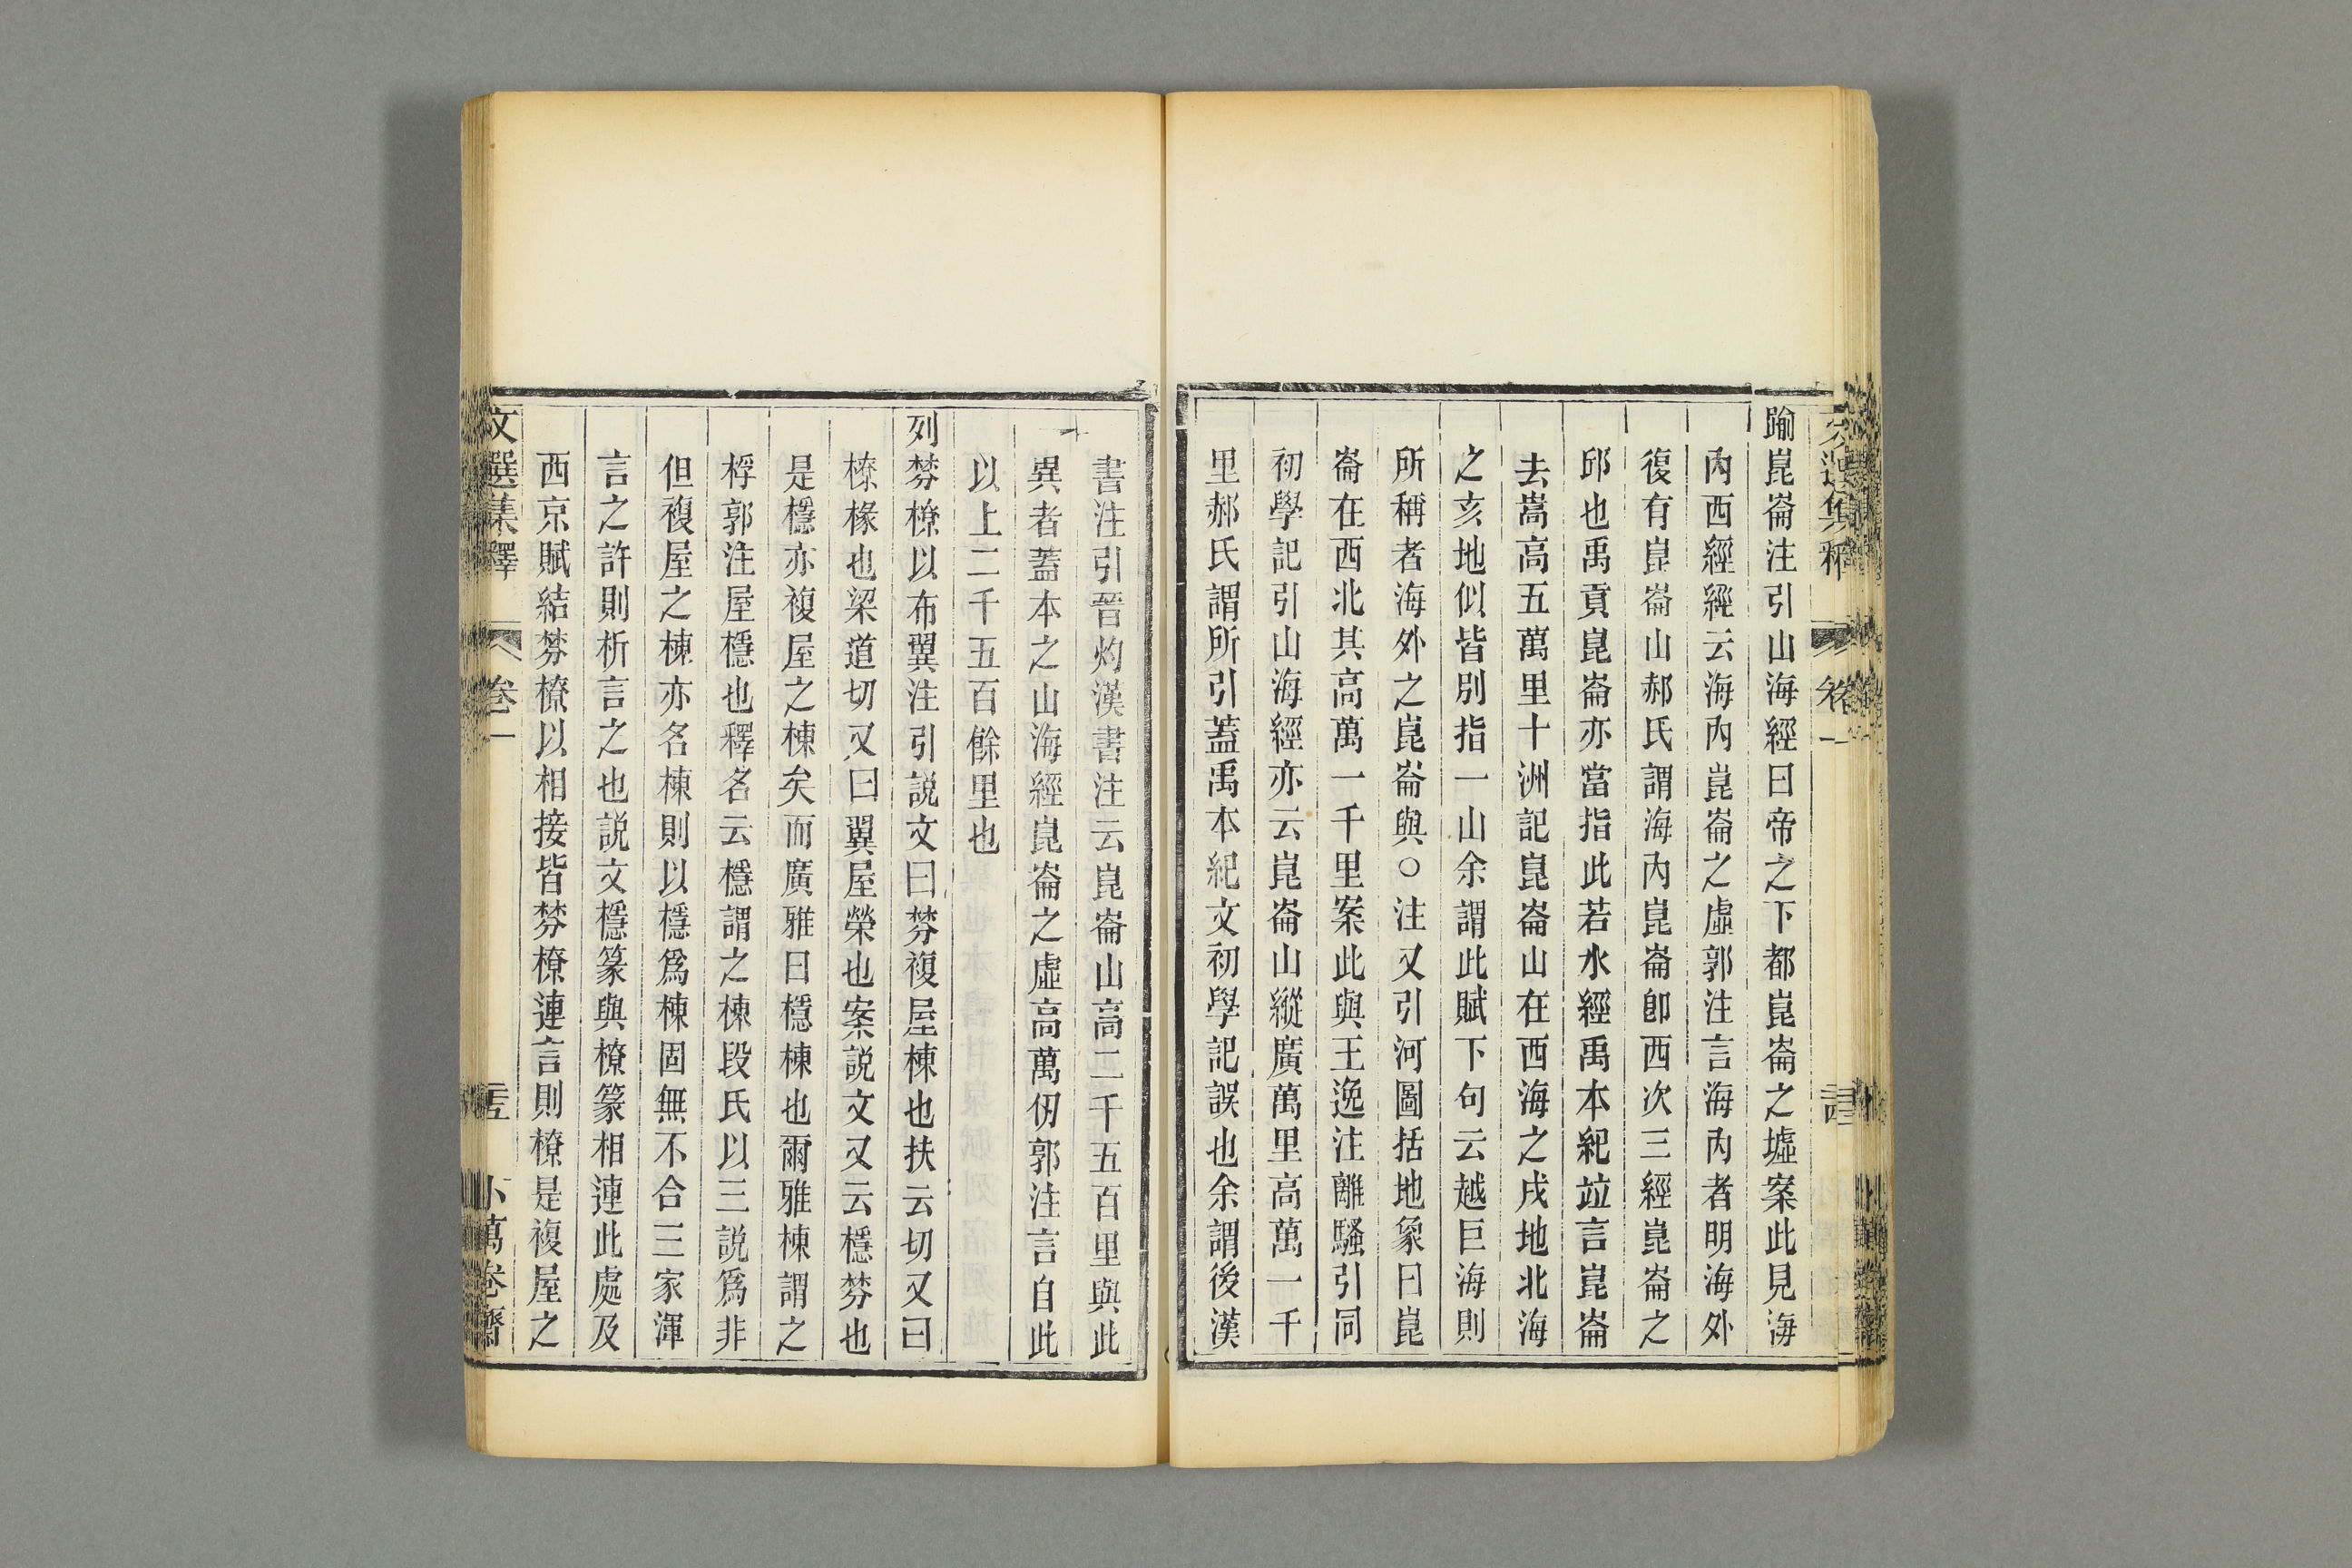 文選集釋 卷一
踰崑崙注引山海經曰帝之下都崑崙之墟案此見海
內西經經云海內崑崙之虛郭注言海內者明海外
復有崑崙山郝氏謂海內崑崙卽西次三經崑崙之
邱也禹貢崑崙亦當指此若水經禹本紀竝言崑崙
去嵩高五萬里十洲記崑崙山在西海之戌地北海
之亥地似皆別指一山余謂此賦下句云越巨海則
所稱者海外之崑崙與○注又引河圖括地象曰崑
崙在西北其高萬一千里案此與王逸注離騷引同
初學記引山海經亦云崑崙山縱廣萬里高萬一千
里郝氏謂所引蓋禹本紀文初學記誤也余謂後漢
書注引晉灼漢書注云崑崙山高二千五百里與此
異者蓋本之山海經崑崙之虛高萬仞郭注言自此
以上二千五百餘里也
列棼橑以布翼注引説文曰棼複屋棟也扶云切又曰
橑椽也梁道切又曰翼屋榮也案説文又云檼棼也
是檼亦複屋之棟矣而廣雅曰檼棟也爾雅棟謂之
桴郭注屋檼也釋名云檼謂之棟段氏以三説爲非
但複屋之棟亦名棟則以檼爲棟固無不合三家渾
言之許則析言之也説文檼篆與橑篆相連此處及
西京賦結棼橑以相接皆棼橑連言則橑是複屋之
文選集釋 卷一 小萬卷齋